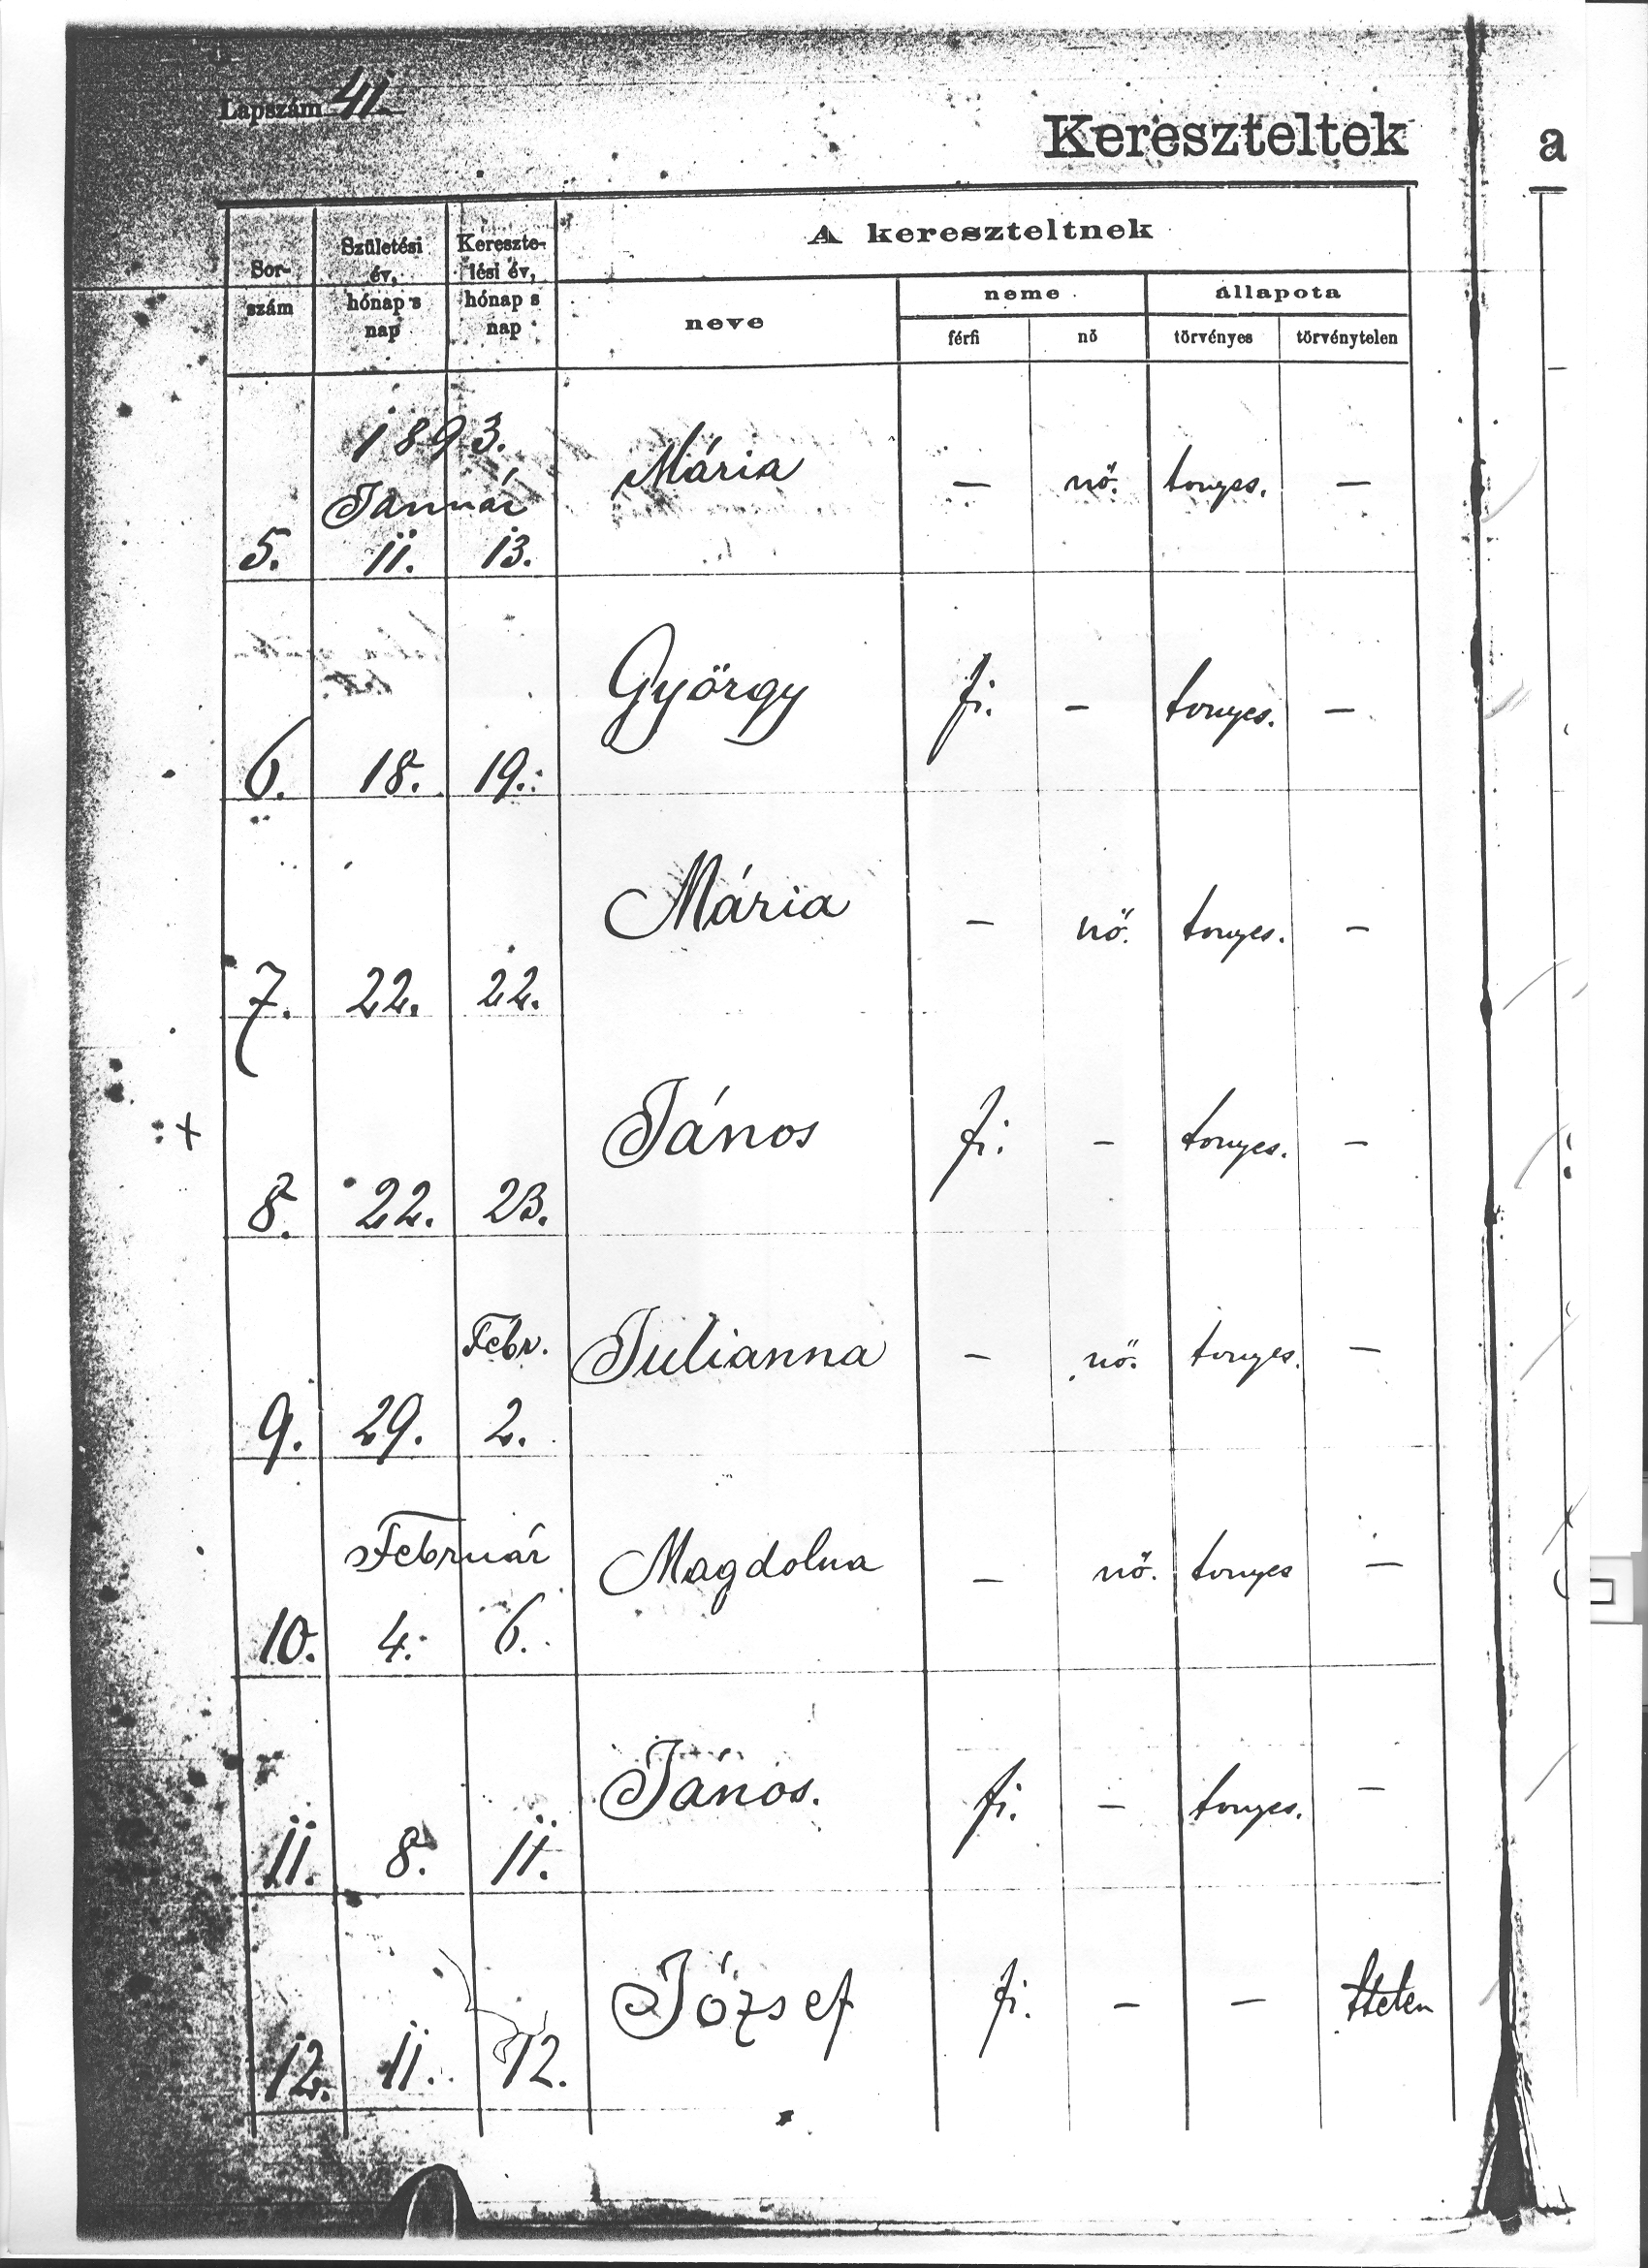 Lapszám 41
Kereszteltek
a
Sor-
szám
Születési
év,
hónap s
nap
Keresz­te-
lési év,
hónap s
nap
A kereszteltnek
neve
neme
állapota
férfi
nő
törvényes
törvénytelen
1893.
Január
5. 11. 13. Mária — nő. tonyes. —
6. 18. 19. György fi. — tonyes. —
7. 22. 22. Mária — nő. tonyes. —
8. 22. 23. János fi. — tonyes. —
Febr.
9. 29. 2. Julianna — nő. tonyes. —
Február
10. 4. 6. Magdolna — nő. tonyes —
11. 8. 11. János. fi. — tonyes. —
12. 11. 12. József fi. — — ttelen